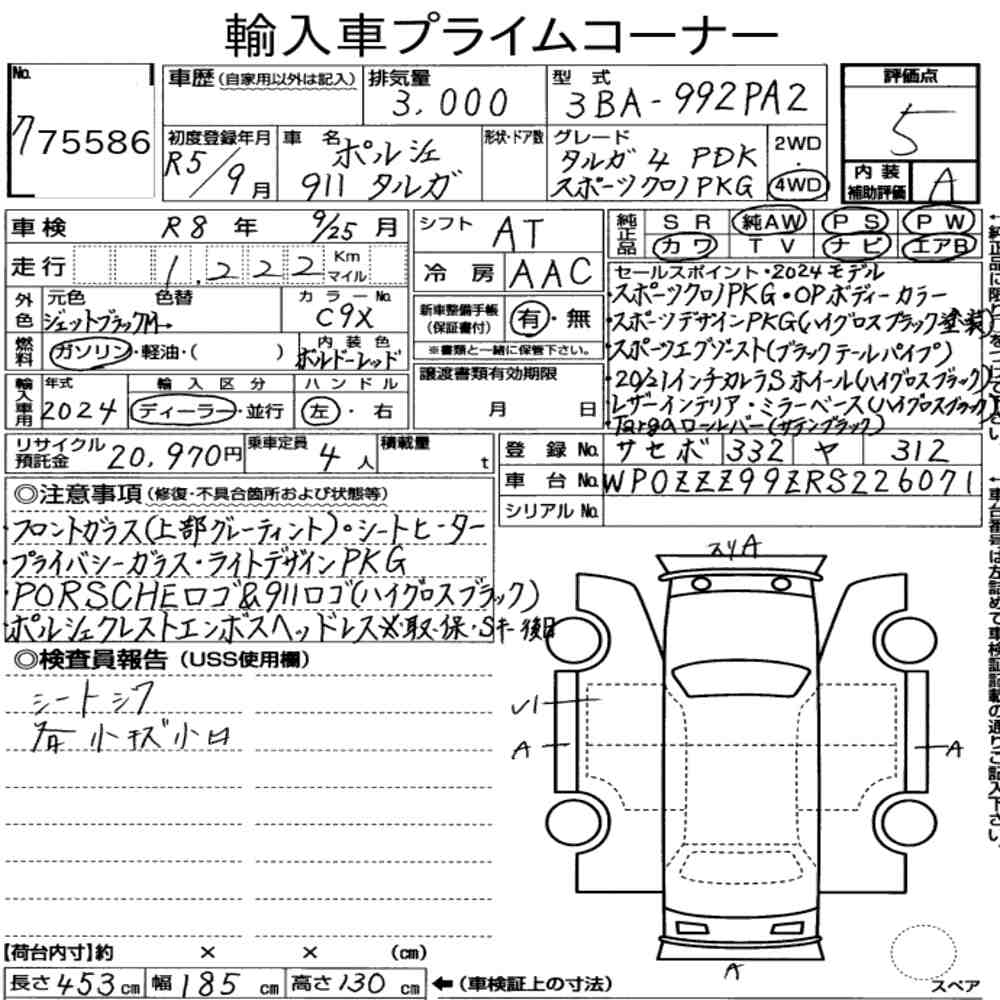 輸入車プライムコーナー
No.
775586
車歴(自家用以外は記入)
排気量
3,000
型式
3BA-992PA2
評価点
5
初度登録年月
R5/9月
車名
ポルシェ
911 タルガ
形状・ドア数
グレード
タルガ4 PDK
スポーツクロノPKG
2WD
・
4WD
内装
補助評価
A
車検 R8年 9/25月
シフト AT
純正品
SR 純AW PS PW
カワ TV ナビ エアB
走行 1,222 Km マイル
冷房 AAC
セールスポイント・2024モデル
・スポーツクロノPKG・OPボディーカラー
・スポーツデザインPKG(ハイグロスブラック塗装)
・スポーツエグゾースト(ブラックテールパイプ)
・20/21インチカレラSホイール(ハイグロスブラック)
・レザーインテリア・ミラーベース(ハイグロスブラック)
・Targaロールバー(サテンブラック)
外色
元色 色替
ジェットブラックM→
カラーNo.
C9X
新車整備手帳
(保証書付)
有・無
※書類と一緒に保管下さい。
燃料
ガソリン・軽油・( )
内装色
ボルドーレッド
譲渡書類有効期限
月 日
輸入車用
年式
2024
輸入区分
ディーラー・並行
ハンドル
左・右
リサイクル預託金 20,970円
乗車定員 4人
積載量 t
登録No. サセボ 332 ヤ 312
車台No. WP0ZZZ99ZRS226071
シリアルNo.
◎注意事項(修復・不具合箇所および状態等)
・フロントガラス(上部グレーティント)・シートヒーター
・プライバシーガラス・ライトデザインPKG
・PORSCHEロゴ&911ロゴ(ハイグロスブラック)
・ポルシェクレストエンボスヘッドレスト※取・保・Sキー後日
◎検査員報告(USS使用欄)
シートシワ
小キズ小凹
スリA
A
A
A
スペア
【荷台内寸】約 × × (cm)
長さ453cm 幅185cm 高さ130cm
←(車検証上の寸法)